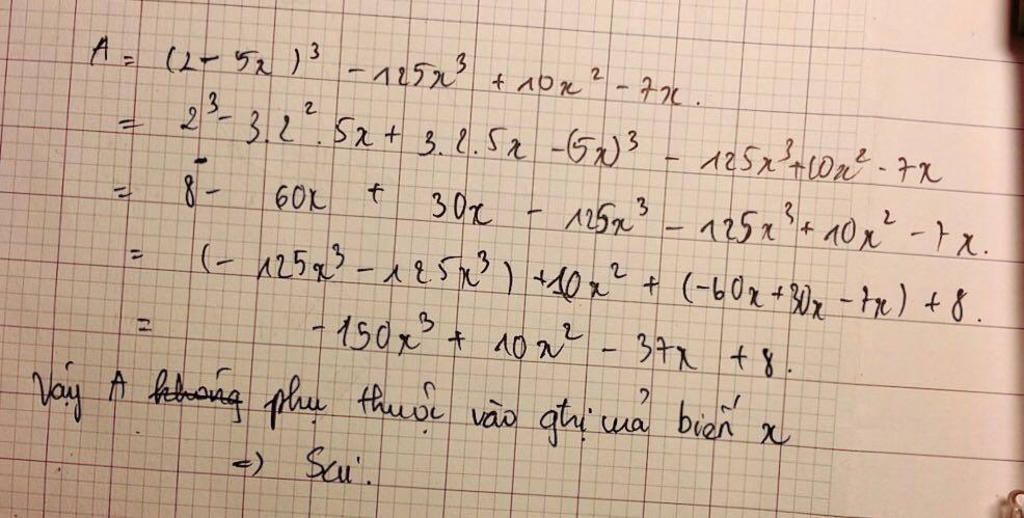 A = (2 - 5x)³ - 125x³ + 10x² - 7x.
= 2³ - 3.2².5x + 3.2.5x - (5x)³ - 125x³ + 10x² - 7x
= 8 - 60x + 30x - 125x³ - 125x³ + 10x² - 7x.
= (- 125x³ - 125x³) + 10x² + (-60x + 30x - 7x) + 8.
= - 150x³ + 10x² - 37x + 8.
Vậy A không phụ thuộc vào gtrị của biến x
=> Sai.